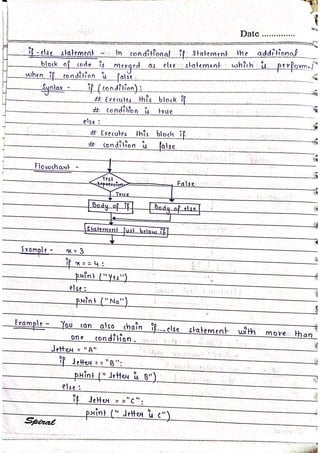 Date ..............
if-else statement - In conditional if statement the additional
block of code is merged as else statement which is perform
when if condition is false.
Syntax - if (condition):
# Executes this block if
# condition is true
else:
# Executes this block if
# condition is false
Flowchart -
Test
expression
False
True
Body of if
Body of else
Statement just below if
Example - x=3
if x==4:
print ("Yes")
else:
print ("No")
Example - You can also chain if...else statement with more than
one condition.
letter = "A"
if letter == "B":
print ("letter is B")
else:
if letter =="C":
print ("letter is C")
Spiral